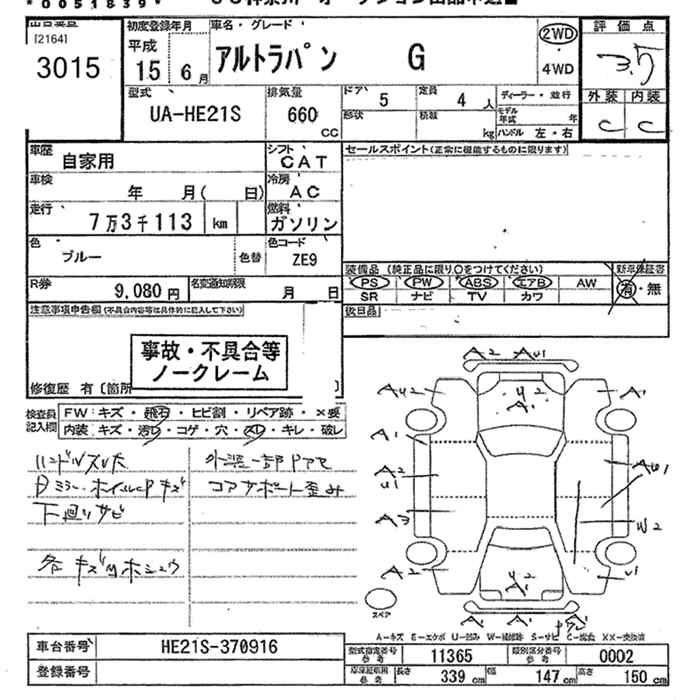 *0051839*
[2164]
3015
初度登録年月
平成
15 6月
車名・グレード
アルトラパン G
2WD
・
4WD
評価点
3.5
外装 内装
C C
型式
UA-HE21S
排気量
660
CC
ドア 5
定員 4人
形状
積載 kg
ディーラー・並行
モデル年式 年
ハンドル 左・右
車歴 自家用
シフト CAT
車検 年 月( 日)
冷房 AC
走行 7万3千113 km
燃料 ガソリン
色 ブルー 色替
色コード ZE9
R券 9,080円
名変通知期限 月 日
セールスポイント(正常に機能するものに限ります)
装備品 (純正品に限り○をつけてください)
新車保証書
PS PW ABS エアB AW
有・無
SR ナビ TV カワ
後日品
注意事項申告欄(不具合内容等は具体的に記入して下さい)
事故・不具合等
ノークレーム
修復歴 有〔箇所 〕
検査員
記入欄
FW: キズ・飛石・ヒビ割・リペア跡・×要
内装: キズ・汚レ・コゲ・穴・スレ・キレ・破レ
ハンドルスレ大
外装一部ドアセ
コアサポート歪み
下廻りサビ
各キズ凹ホシュウ
A2 AU1
AU2 A1
U2
A1
A1
A2
U1
AU1
A3
W2
A2 U1
U2
AU1
A1
スペア
A-キズ E-エクボ U-凹み W-補修跡 S-サビ C-腐食 XX-交換済
車台番号 HE21S-370916
登録番号
型式指定番号
参考
11365
類別区分番号
参考
0002
車検証数値
参考
長さ 339cm
幅 147cm
高さ 150cm